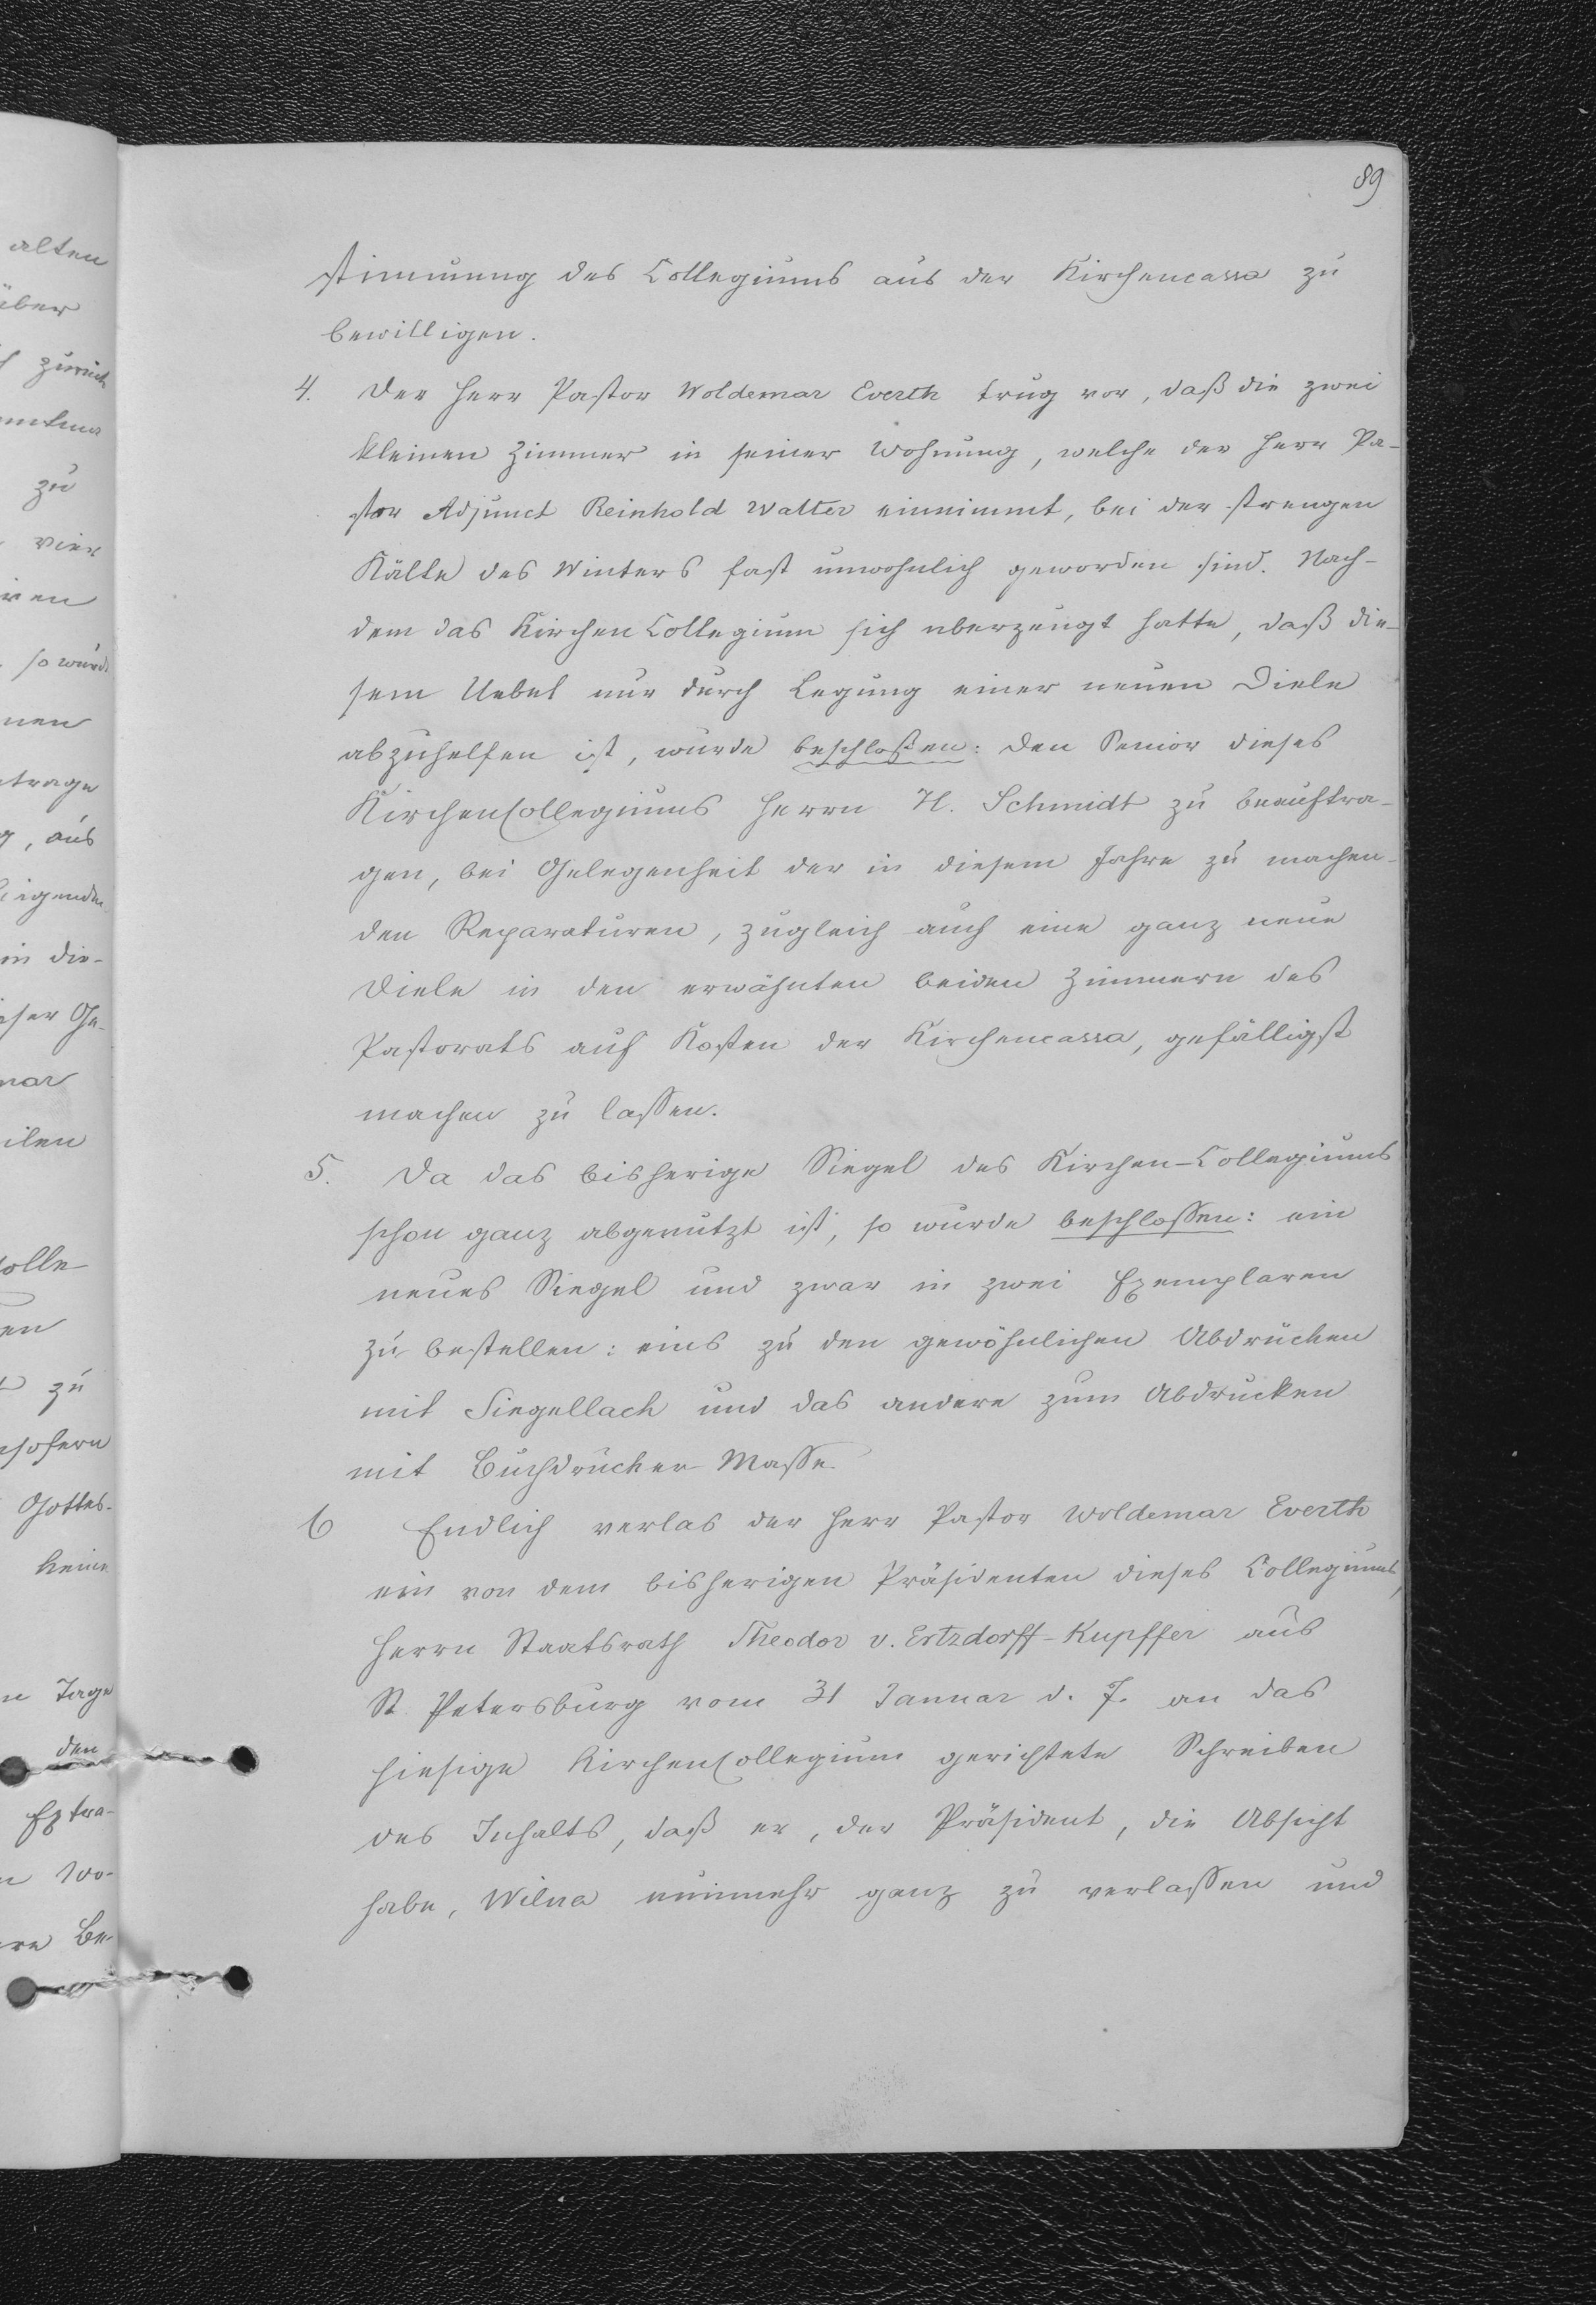 89
stimmung des Collegiums aus der Kirchencassa zu
bewilligen.
4. Der Herr Pastor Woldemar Everth trug vor, daß die zwei
kleinen Zimmer in seiner Wohnung, welche der Herr Pa-
stor Adjunct Reinhold Walter einnimmt, bei der strengen
Kälte des Winters fast unwohnlich geworden sind. Nach-
dem das Kirchen Collegium sich uberzeugt hatte, daß die-
sem Uebel nur durch Legung einer neuen Diele
abzuhelfen ist, wurde beschloßen: den Senior dieses
KirchenCollegiums Herrn H. Schmidt zu beauftra-
gen, bei Gelegenheit der in diesem Jahre zu machen-
den Reparaturen, zugleich auch eine ganz neue
Diele in den erwähnten beiden Zimmern des
Pastorats auf Kosten der Kirchencassa, gefälligst
machen zu lassen.
5. Da das bisherige Siegel des Kirchen-Collegiums
schon ganz abgenutzt ist, so wurde beschlossen: ein
neues Siegel und zwar in zwei Exemplaren
zu bestellen: eins zu den gewöhnlichen Abdrücken
mit Siegellack und das andere zum Abdrucken
mit Buchdrucker-Masse.
6 Endlich verlas der Herr Pastor Woldemar Everth
ein von dem bisherigen Präsidenten dieses Collegiums,
Herrn Staatsrath Theodor v. Ertzdorff-Kupffer aus
St. Petersburg vom 31 Januar d. J. an das
hiesige KirchenCollegium gerichtete Schreiben
des Inhalts, daß er, der Präsident, die Absicht
habe, Wilna nunmehr ganz zu verlassen und